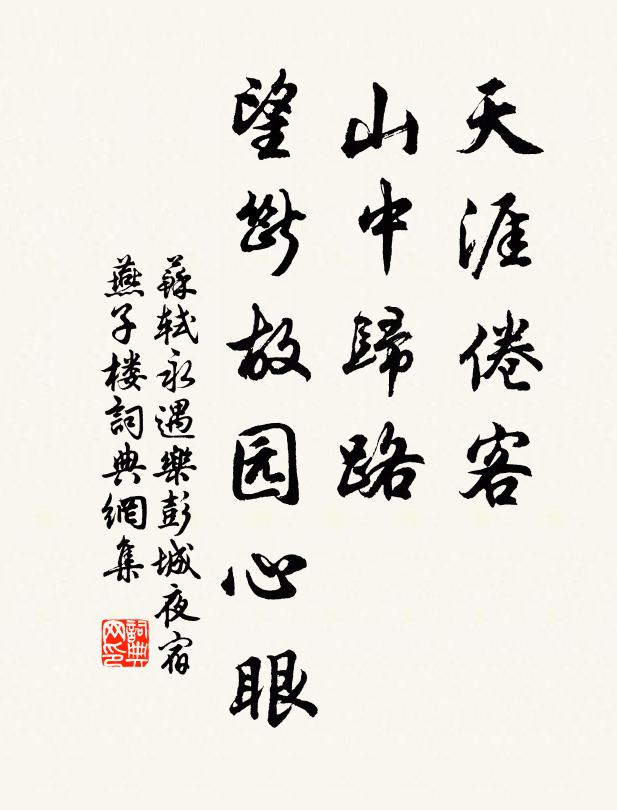 天涯倦客
山中歸路
望斷故园心眼
蘇軾永遇樂彭城夜宿
燕子楼詞典網集
詞典网印